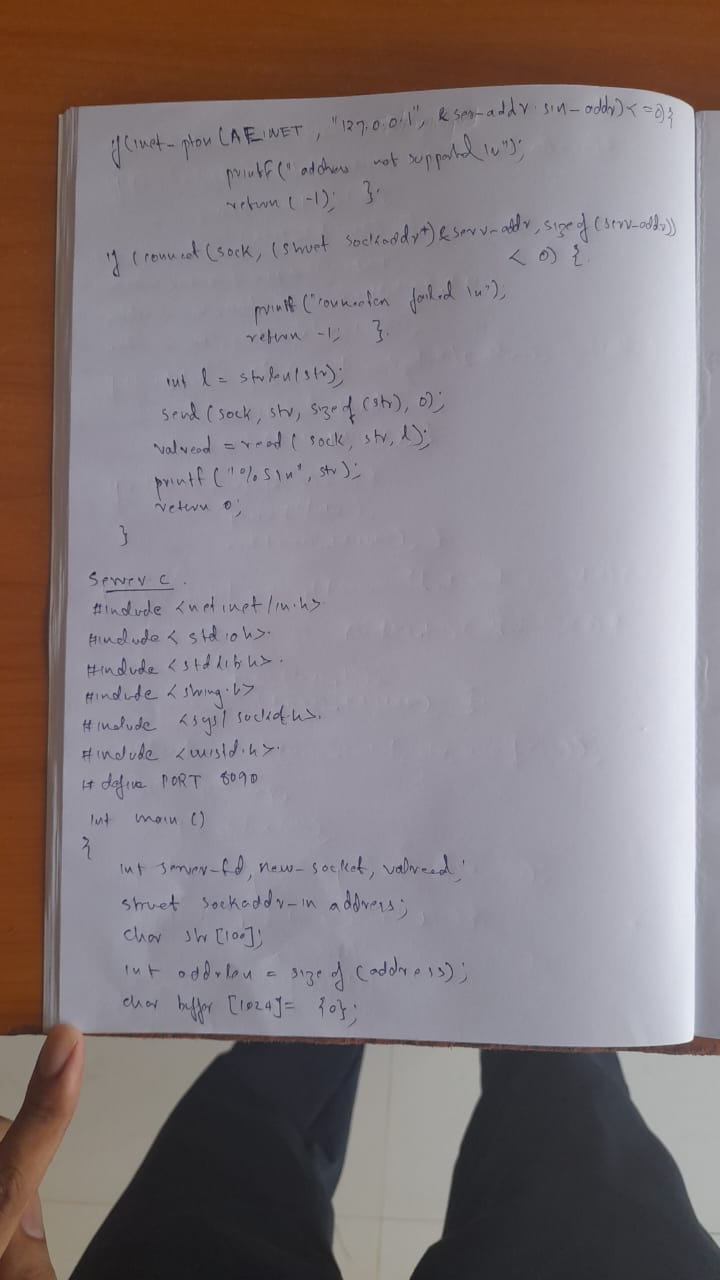 if(inet-pton (AF_INET, "127.0.0.1", &serv-addr.sin-addr)<=0){
printf("address not supported \n");
return (-1); }
if (connect (sock, (struct sockaddr*) &serv-addr, sizeof (serv-addr))
< 0) {
printf ("connection failed \n");
return -1; }
int l = strlen(str);
send (sock, str, sizeof (str), 0);
valread = read ( sock, str, l);
printf ("%s\n", str);
return 0;
}
Server c.
#include <netinet/in.h>
#include < stdio.h>.
#include <stdlib.h>.
#include <string.h>
#include <sys/ socket.h>.
#include <unistd.h>.
# define PORT 8090
int main ()
{
int server-fd, new-socket, valread;
struct sockaddr-in address;
char str [100];
int addrlen = sizeof (address);
char buffer [1024]= {0};